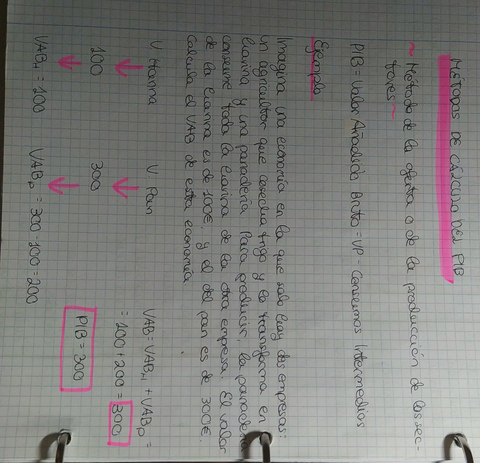 MÉTODOS DE CÁLCULO DEL PIB
~ Método de la oferta o de la producción de los sec-
tores ~
PIB = Valor Añadido Bruto = VP - Consumos Intermedios
Ejemplo
Imagina una economía en la que solo hay dos empresas:
un agricultor que cosecha trigo y lo transforma en
harina y una panadería. Para producir, la panadería
consume toda la harina de la otra empresa. El valor
de la harina es de 100€ y el del pan es de 300€.
Calcula el VAB de esta economía
V Harina V Pan VAB = VAB_H + VAB_P =
100 300 = 100 + 200 = 300
VAB_H = 100 VAB_P = 300 - 100 = 200 PIB = 300